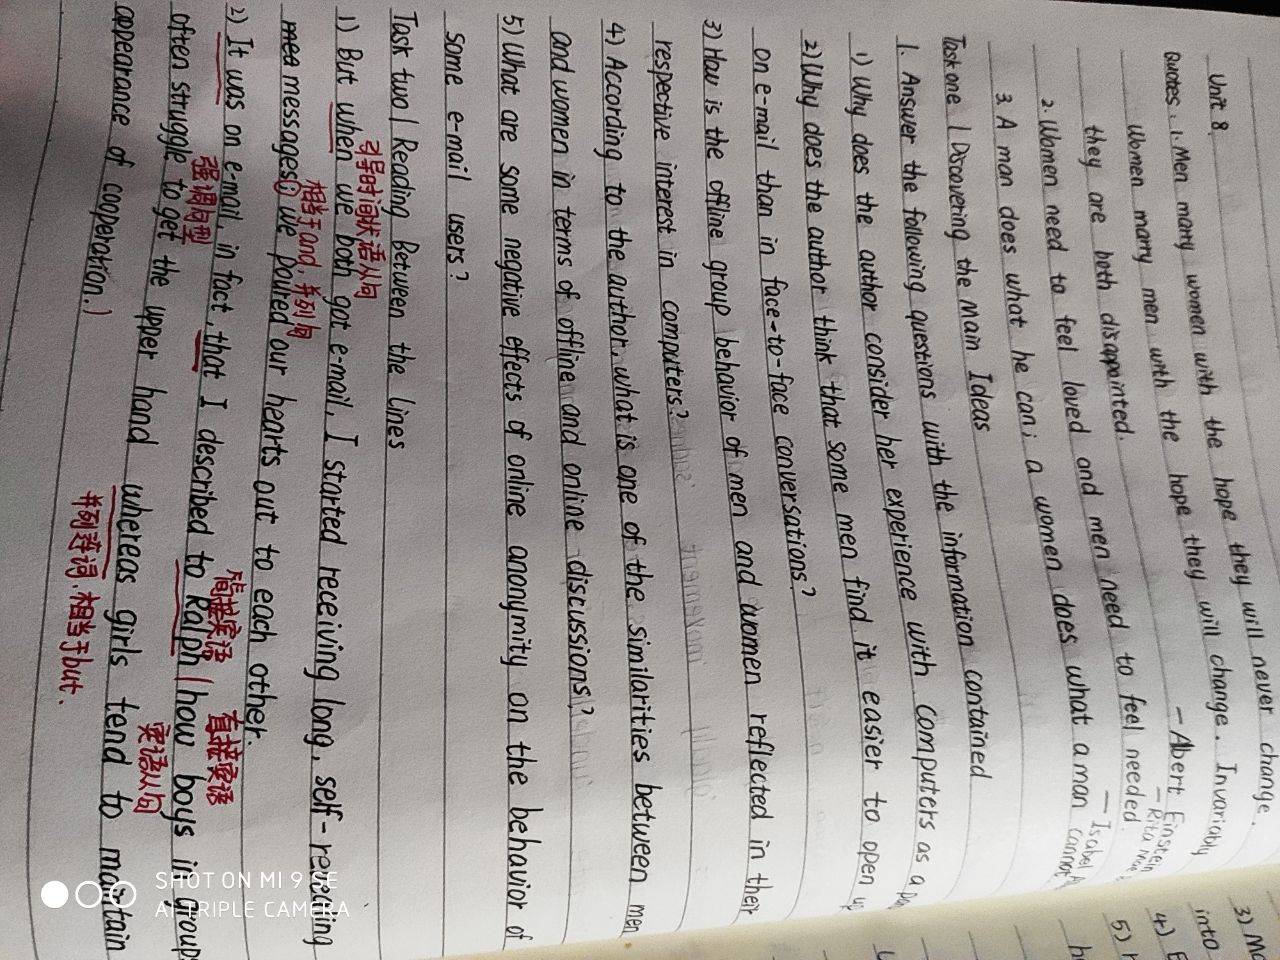 Unit 8
Quotes: 1. Men marry women with the hope they will never change.
Women marry men with the hope they will change. Invariably
they are both disappointed. — Albert Einstein
2. Women need to feel loved and men need to feel needed. — Rita Mae
3. A man does what he can; a women does what a man cannot — Isabel
Task one / Discovering the Main Ideas
1. Answer the following questions with the information contained
1) Why does the author consider her experience with computers as a
2) Why does the author think that some men find it easier to open up
on e-mail than in face-to-face conversations?
3) How is the offline group behavior of men and women reflected in their
respective interest in computers?
4) According to the author, what is one of the similarities between men
and women in terms of offline and online discussions?
5) What are some negative effects of online anonymity on the behavior of
some e-mail users?
Task two / Reading Between the lines
引导时间状语从句
1) But when we both got e-mail, I started receiving long, self-revealing
相当于and,并列句
messages; we poured our hearts out to each other.
2) It was on e-mail, in fact, that I described to Ralph / how boys in groups
强调句型 间接宾语 直接宾语
often struggle to get the upper hand whereas girls tend to maintain
宾语从句
appearance of cooperation.)
并列连词,相当于but.
3)
into
4)
5)
SHOT ON MI 9 SE
AI TRIPLE CAMERA